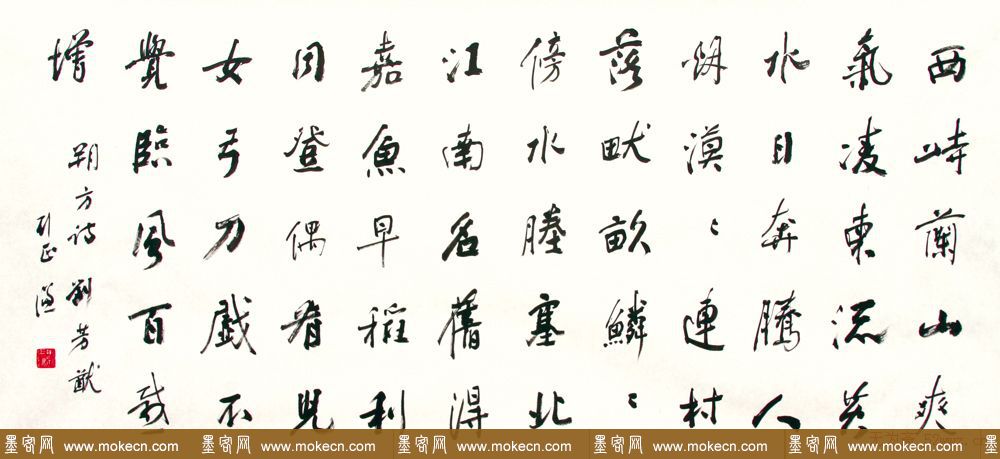 西峙蘭山爽
氣凌東流黃
水日奔騰人
烟漠々連村
落畎畝鱗々
傍水塍塞北
江南名舊得
嘉魚早稻利
同登偶看兒
女弓刀戲不
覺臨風百感
增
朔方詩 劉芳猷
墨客网 www.mokecn.com 墨客网 www.mokecn.com 墨客网 www.mokecn.com 墨客网 www.mokecn.com